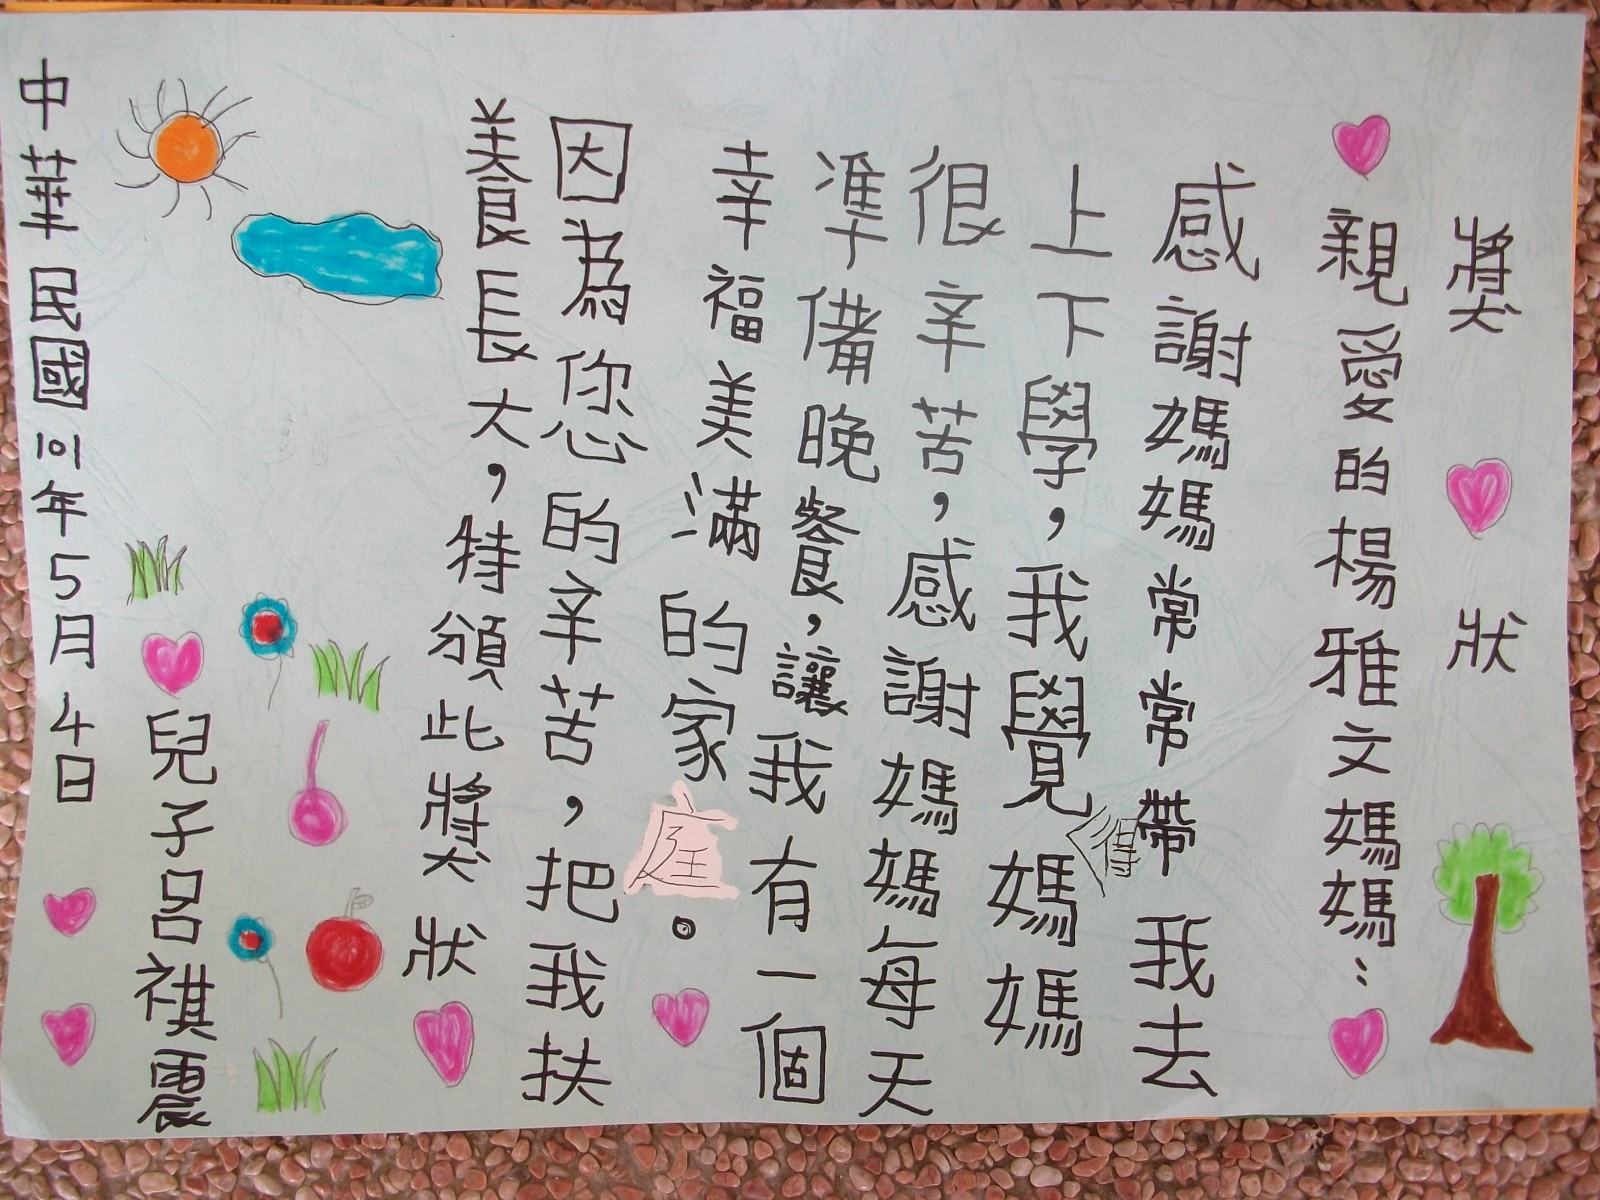 獎狀
親愛的楊雅文媽媽：
感謝媽媽常常帶我去
上下學，我覺得媽媽
很辛苦，感謝媽媽每天
準備晚餐，讓我有一個
幸福美滿的家庭。
因為您的辛苦，把我扶
養長大，特頒此獎狀
兒子呂祺震
中華民國101年5月4日